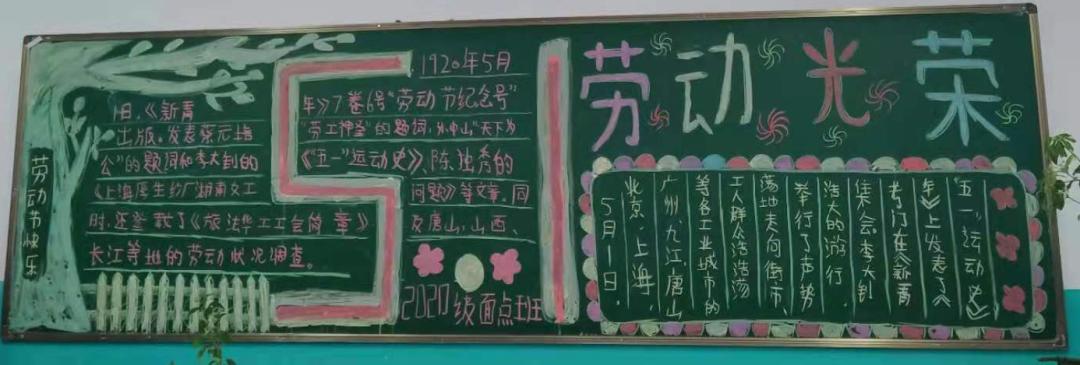 劳动光荣
劳动节快乐
51
1920年5月
1日,《新青
年》7卷6号“劳动节纪念号”
出版。发表蔡元培
“劳工神圣”的题词,孙中山“天下为
公”的题词和李大钊的
《“五一”运动史》、陈独秀的
《上海厚生纱厂湖南女工
问题》等文章。同
时,还登载了《旅法华工工会简章》
及唐山、山西、
长江等地的劳动状况调查。
2020级面点班
5月1日,
北京、上海、
广州、九江、唐山
等各工业城市的
工人群众浩浩荡
荡地走向街市、
举行了声势
浩大的游行、
集会。李大钊
专门在《新青
年》上发表了《
“五一”运动史》